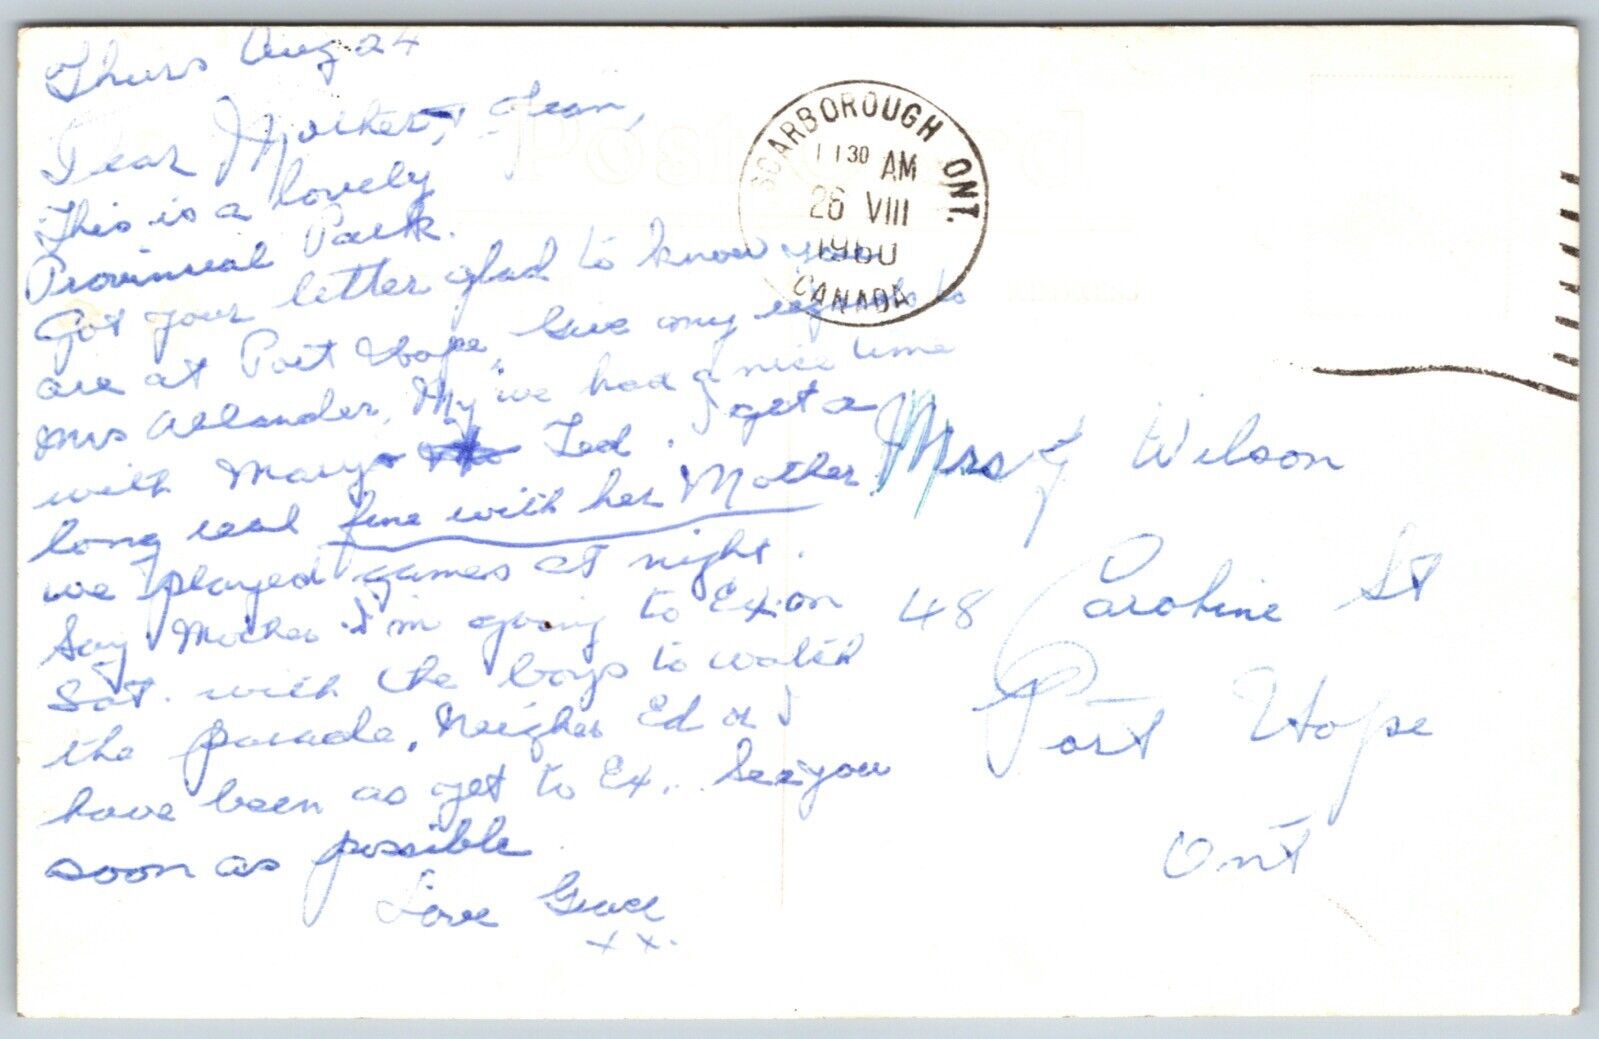 Thurs Aug 24
Dear Mother, & Jean,
This is a lovely
Provincial Park.
Got your letter glad to know you
are at Port Hope, Give my regards to
Mrs My we had a nice time
with Mary Ted. I get a
long real fine with her Mother
we played games at night.
Say Mother I'm going to Ex. on
Sat. with the boys to watch
the parade. Neigher Ed or I
have been as yet to Ex.. See you
soon as possible
Love Grace
x x.
SCARBOROUGH ONT.
11 30 AM
26 VIII
1960
CANADA
Post Card
Mrs J Wilson
48 Caroline St
Port Hope
Ont